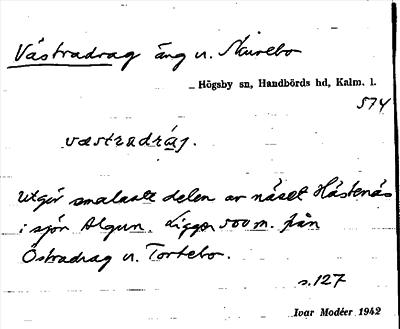 Västradrag äng u. Murebo
Högsby sn, Handbörds hd, Kalm. l.
574
væstradrág.
utgör smalaste delen av näset Hästenäs
i sjön Algun. Ligger 500 m. från
Östradrag u. Torkebo.
s. 127
Ivar Modéer 1942